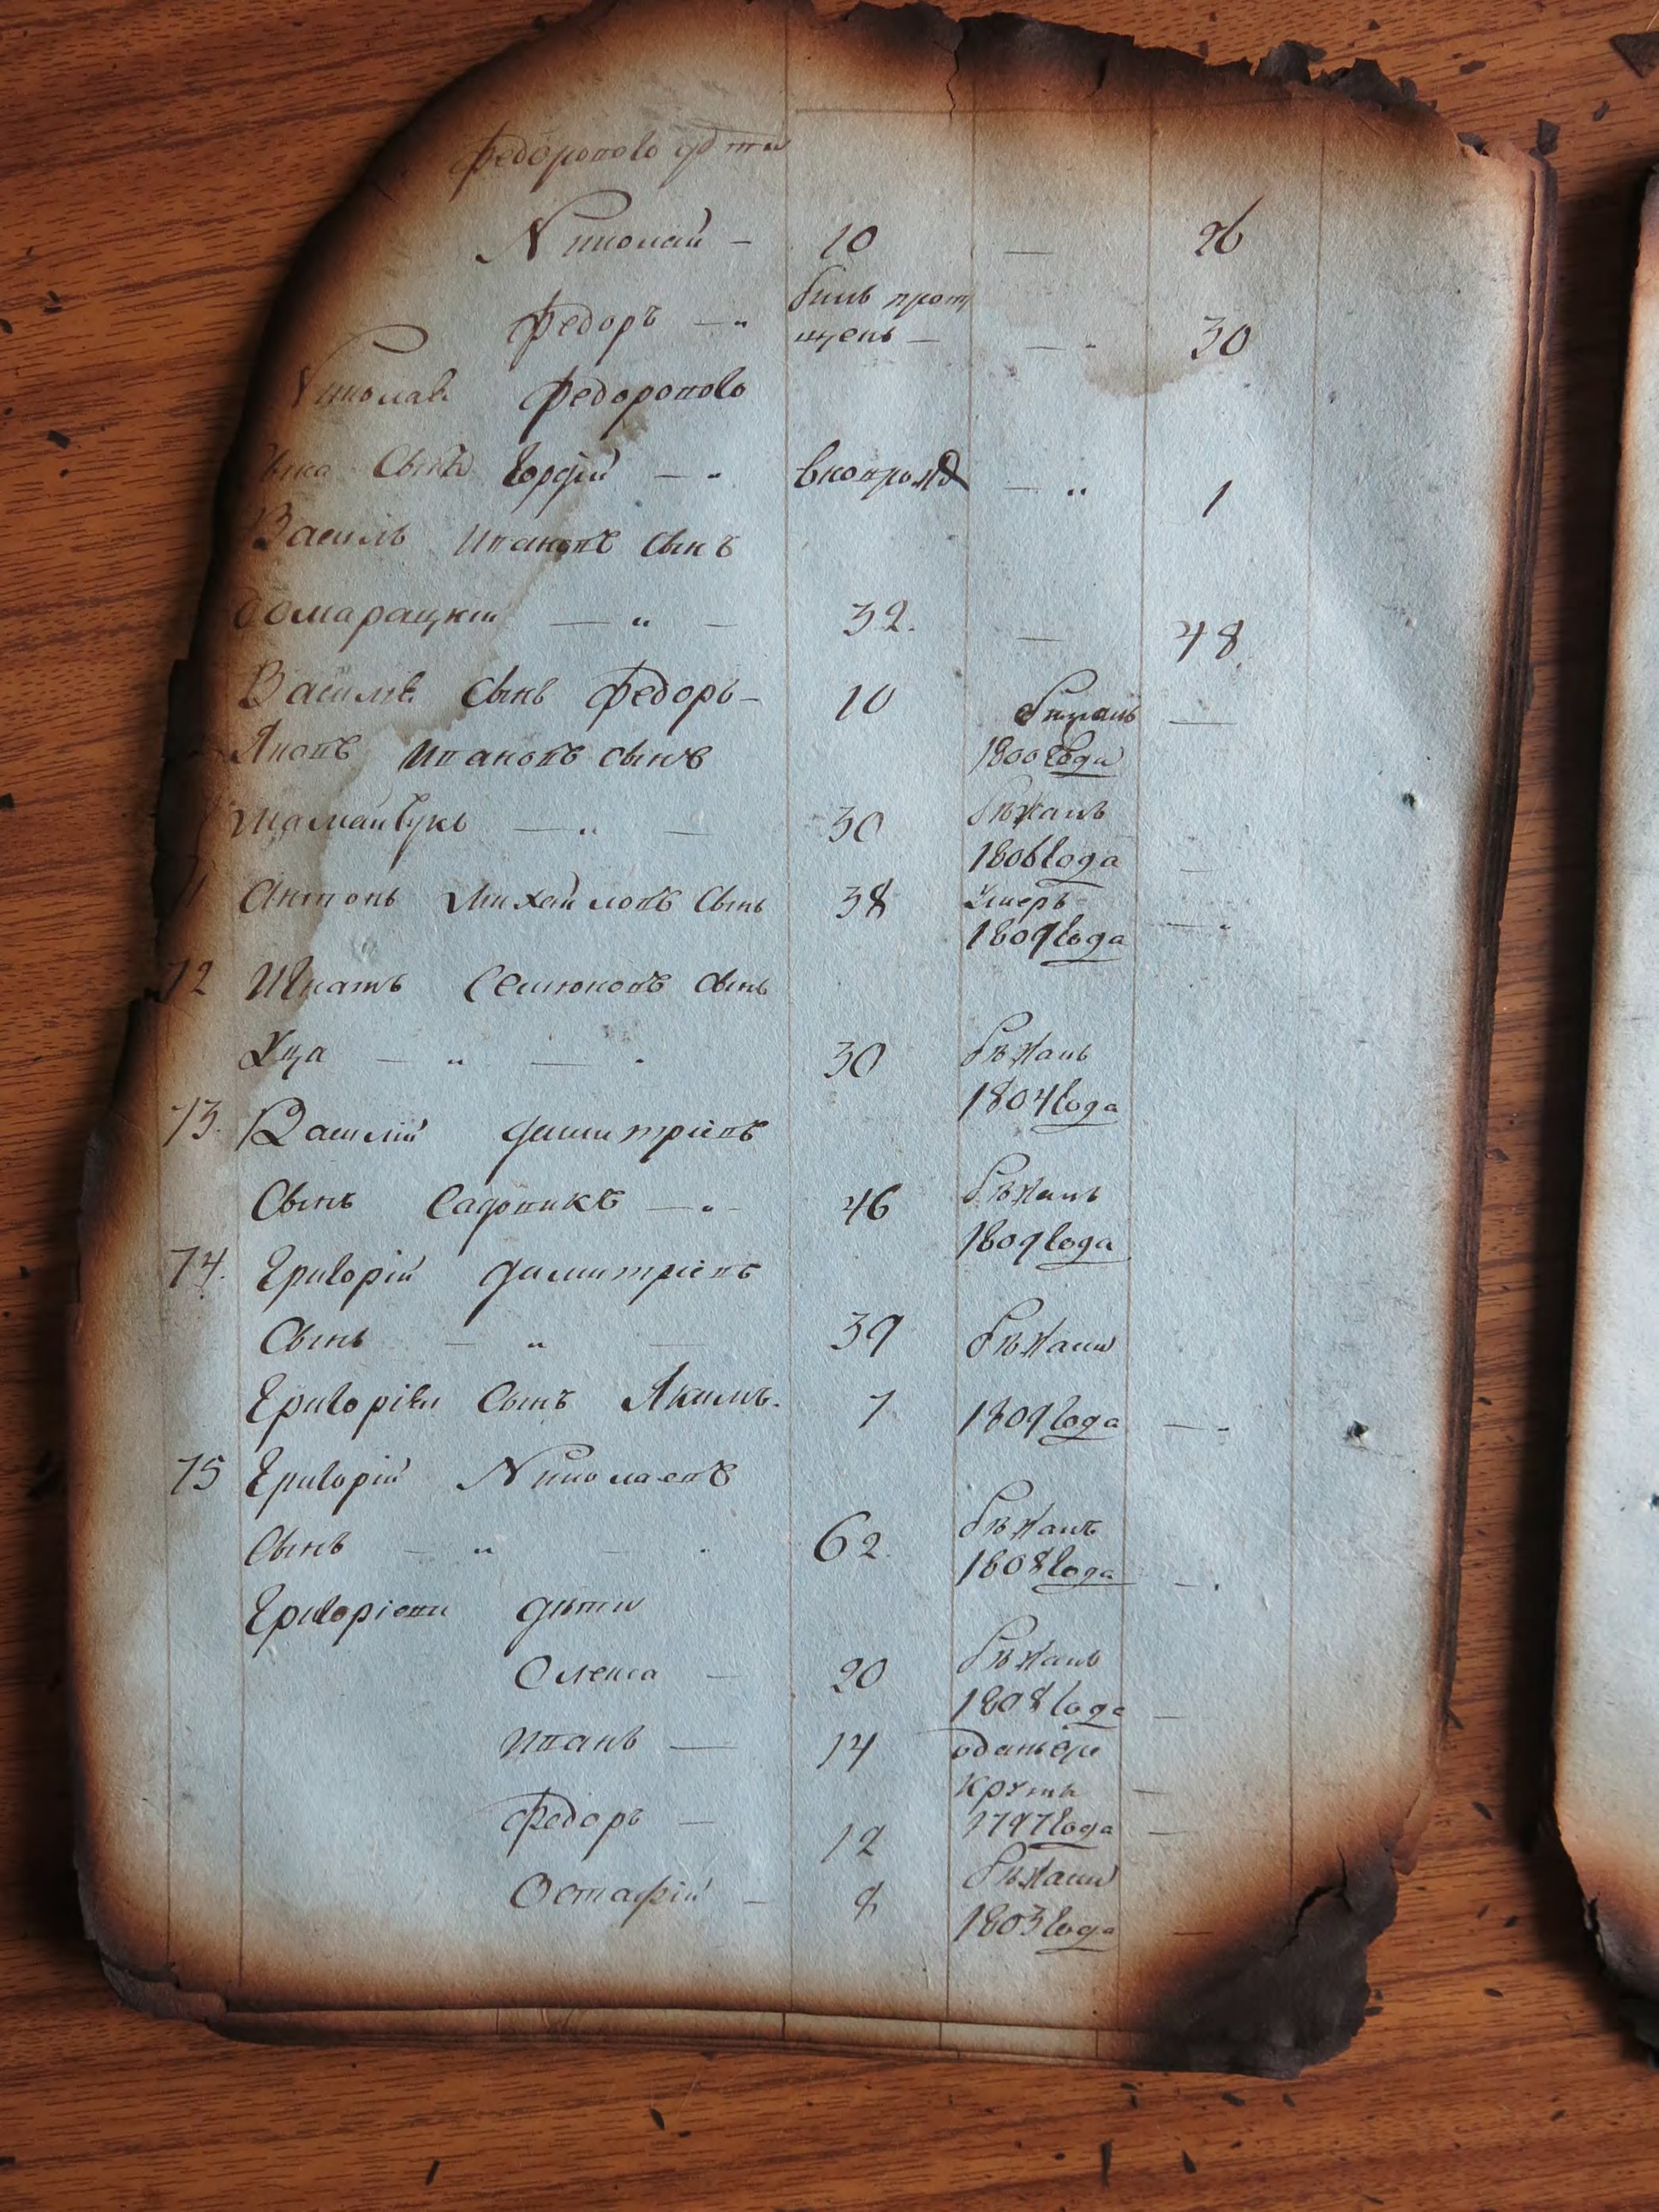 Федорового дѣти
Николай — 10 — 26
Федоръ — „ былъ проп
щенъ — — „ 30
Николая Федоровова
сына сынъ Гордѣй — „ вновърожд — „ 1
Василь Ивановъ сынъ
Домарацкiй — „ — 32. — 48.
Василя сынъ Федоръ — 10 —
Яковъ Ивановъ сынъ 1800 года
Шамайгукъ — „ — 30 бѣжалъ
1806 года —
Антонъ Михайловъ сынъ 38 умеръ
1809 года — „
72 Игнатъ Семюновъ сынъ
Уца — „ — „ 30 бѣжалъ
1804 года
73. Василiй Димитрiевъ
сынъ Садовникъ — „ — 46 бѣжалъ
1809 года
74. Григорiй Димитрiевъ
сынъ — „ — 39 бѣжали
Григорiя сынъ Якимъ. 7 1809 года — „
75 Григорiй Николаевъ
сынъ — „ — . 62. бѣжалъ
1808 года — .
Григорiевы дѣти
Олекса — 20 бѣжалъ
1808 года —
Иванъ — 14 отданъ в ре
круты —
Федоръ — 12 1797 года —
Остафiй — 8 бѣжали
1803 года —